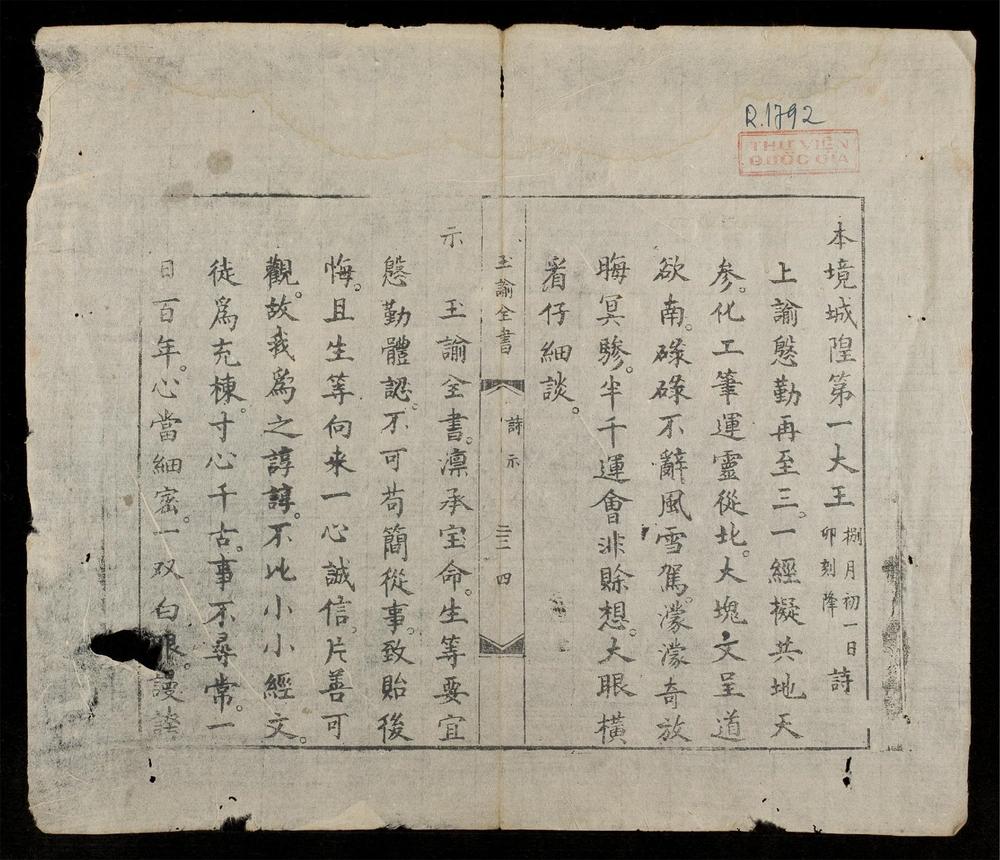 R.1792
THƯ VIỆN
QUỐC GIA
本境城隍第一大王 捌月初一日卯刻降 詩
上諭慇勤再至三。一經擬共地天
参。化工筆運靈從北。大塊文呈道
欲南。碌碌不辭風雪駕。濛濛奇放
晦冥驂。半千運會非賒想。大眼橫
看仔細談。
玉諭全書 詩 示 四
示 玉諭全書。凛承宝命。生等要宜
慇勤體認。不可苟簡從事。致貽後
悔。且生等向来一心誠信。片善可
觀。故我爲之諄諄。不比小小經文。
徒爲充棟。寸心千古。事不尋常。一
日百年。心當細密。一双白眼。謾